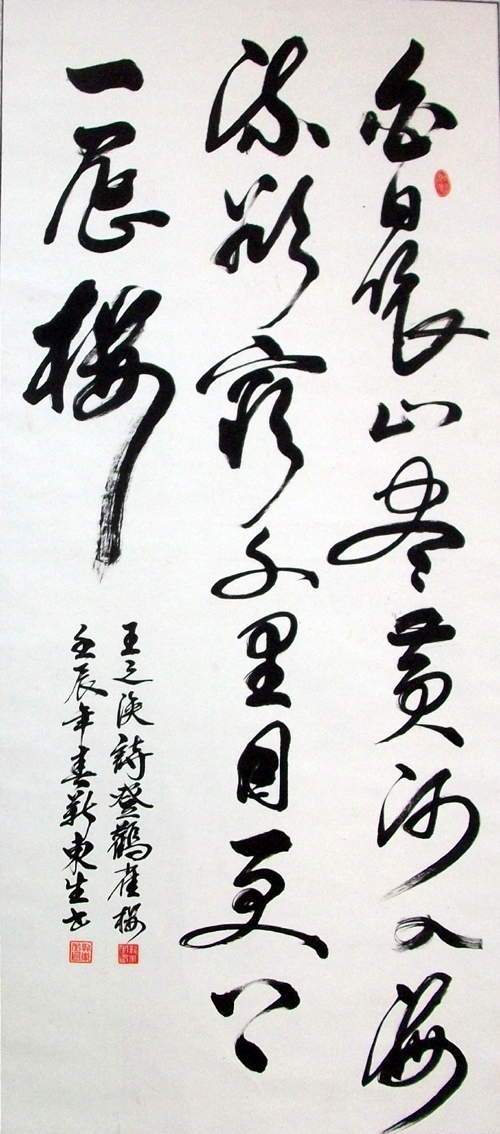 白日依山尽黄河入海
流欲穷千里目更上
一层楼
王之涣詩登鸛雀楼
壬辰年春靳東生书